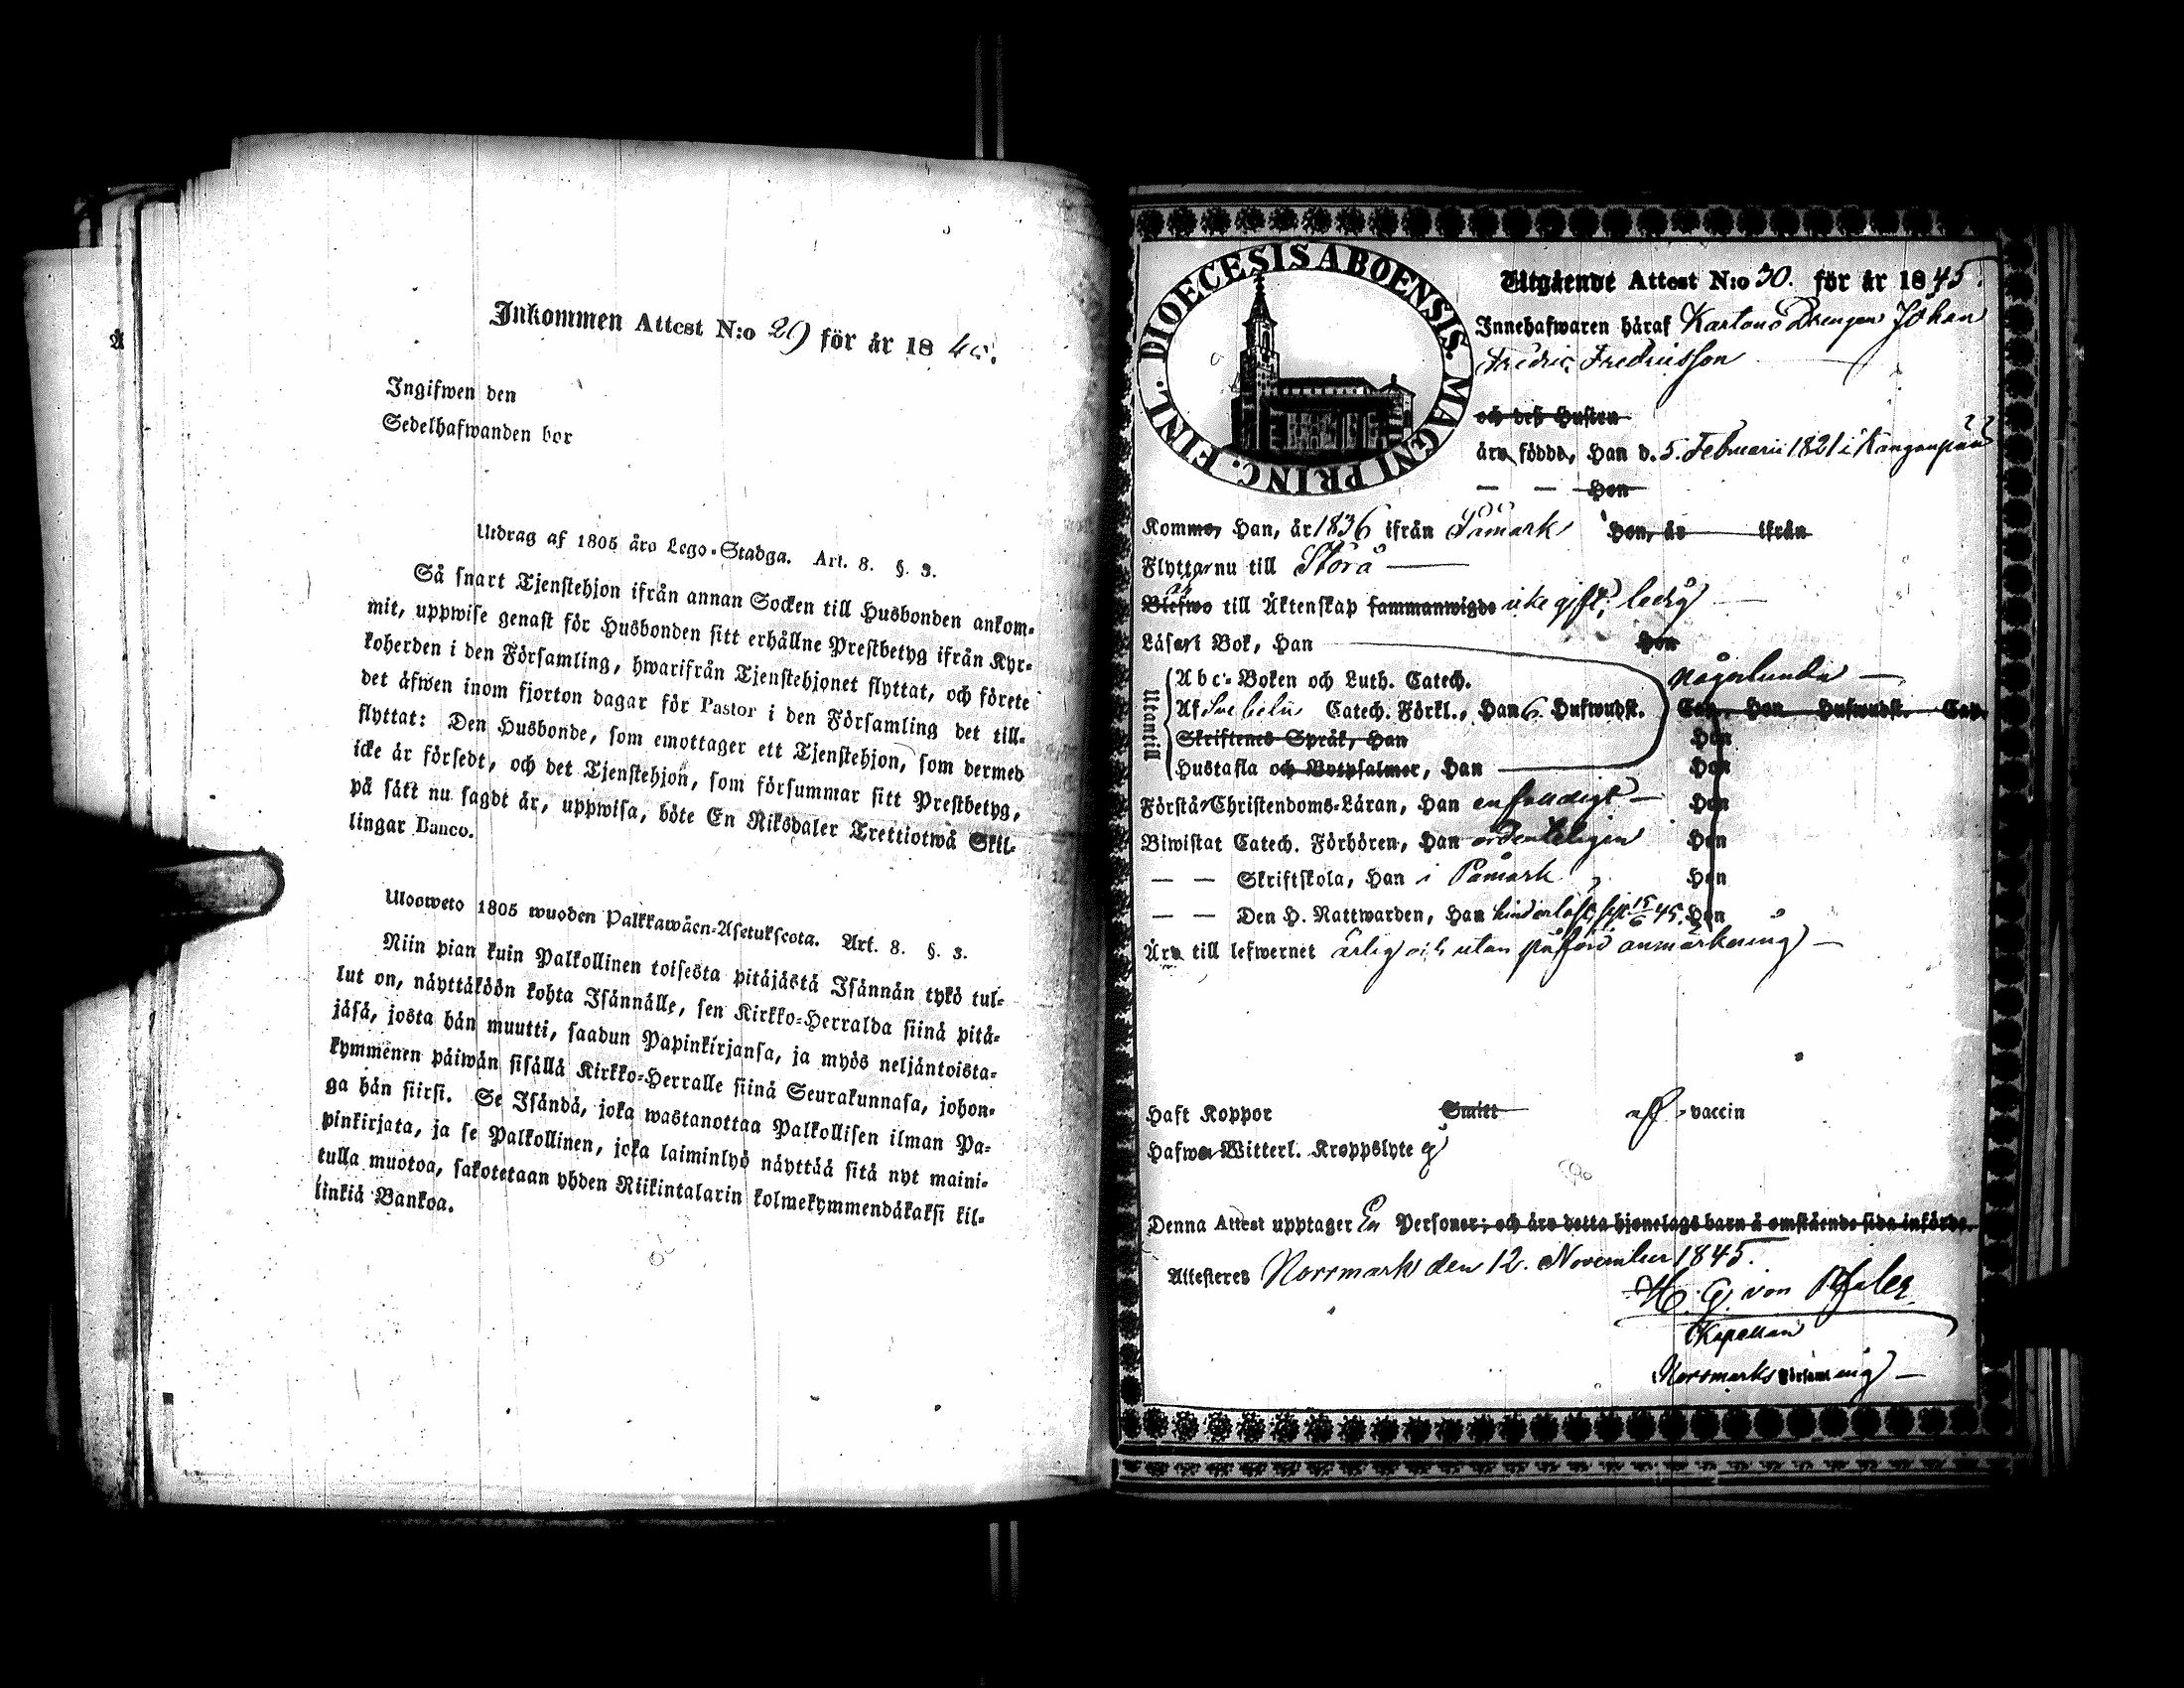 Inkommen Attest N:o 29 för år 1845.
Ingifwen den
Sedelhafwanden bor
Utdrag af 1805 års Lego-Stadga. Art. 8. §. 3.
Så snart Tjenstehjon ifrån annan Socken till Husbonden ankom-
mit, uppwise genast för Husbonden sitt erhållne Prestbetyg ifrån Kyr-
koherden i den Församling, hwarifrån Tjenstehjonet flyttat, och förete
det äfwen inom fjorton dagar för Pastor i den Församling det till-
flyttat: Den Husbonde, som emottager ett Tjenstehjon, som dermed
icke är försedt, och det Tjenstehjon, som försummar sitt Prestbetyg,
på sätt nu sagdt är, uppwisa, böte En Riksdaler Trettiotwå Skil-
lingar Banco.
Ulosweto 1805 wuoden Palkkawäen-Asetuksesta. Art. 8. §. 3.
Niin pian kuin Palkollinen toisesta pitäjästä Isännän tykö tul-
lut on, näyttäköön kohta Isännälle, sen Kirkko-Herralda siinä pitä-
jäsä, josta hän muutti, saadun Papinkirjansa, ja myös neljäntoista-
kymmenen päiwän sisällä Kirkko-Herralle siinä Seurakunnasa, johon-
ga hän siirsi. Se Isändä, joka wastanottaa Palkollisen ilman Pa-
pinkirjata, ja se Palkollinen, joka laiminlyö näyttää sitä nyt maini-
tulla muotoa, sakotetaan yhden Riikintalarin kolmekymmendäkaksi kil-
linkiä Bankoa.
FINL. DIOECESIS ABOENSIS. MAGNI PRINC.
Utgående Attest N:o 30. för år 1845.
Innehafwaren häraf Karlons Drengen Johan
Fredric Fredricsson
och deß Hustru
äro födde, Han d. 5. Februarii 1821 i
— — Hon
Komme, Han, år 1836 ifrån Påmark Hon, år ifrån
Flyttar nu till Storå
Blefwo till Äktenskap sammanwigde icke gift, ledig
Läser i Bok, Han Hon
Utantill
Abc-Boken och Luth. Catech. någorlunda
Af Svebelii Catech. Förkl., Han 6. Hufwudst. Cap. Hon Hufwudst. Cap.
Skriftenes Språk, Han Hon
Hustafla och Botpsalmer, Han Hon
Förstår Christendoms-Läran, Han enfaldigt Hon
Biwistat Catech. Förhören, Han ordenteligen Hon
— — Skriftskola, Han i Påmark Hon
— — Den H. Nattwarden, Han hinderlöst, sist 15/6 45. Hon
Äro till lefwernet ärlig och utan påförd anmärkning
Haft Koppor Smitt vaccin
Hafwa Witterl. Kroppslyte ej
Denna Attest upptager En Personer; och äro detta hjonelags barn å omstående sida införde.
Attesteres Norrmark den 12. November 1845.
H. G. von Pfaler
Kapellan
Norrmarks Församling